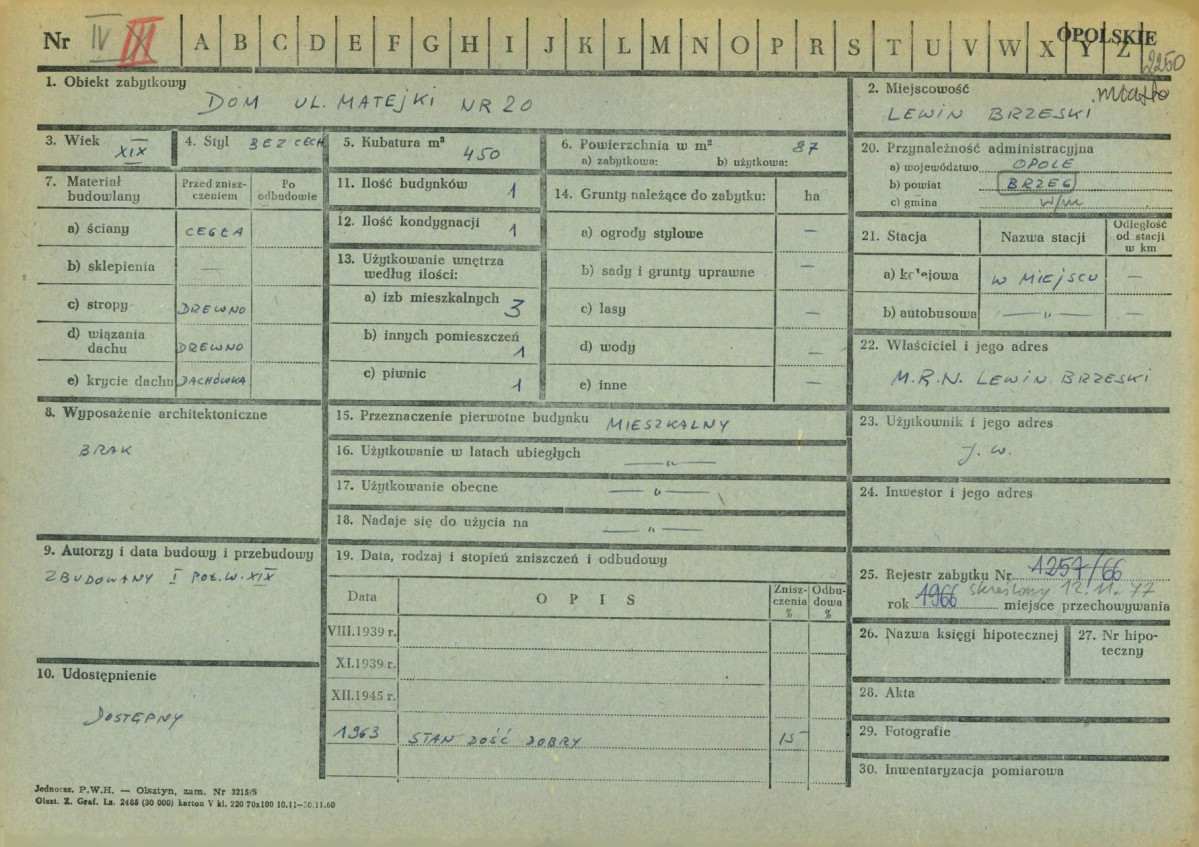 Nr IV III A B C D E F G H I J K L M N O P R S T U V W X Y Z
OPOLSKIE
2250
1. Obiekt zabytkowy
DOM UL. MATEJKI NR 20
2. Miejscowość
miasto
LEWIN BRZESKI
3. Wiek
XIX
4. Styl BEZ CECH
5. Kubatura m³
450
6. Powierzchnia w m² 87
a) zabytkowa: b) użytkowa:
7. Materiał budowlany
Przed zniszczeniem
Po odbudowie
a) ściany CEGŁA
b) sklepienia —
c) stropy DREWNO
d) wiązania dachu DREWNO
e) krycie dachu DACHÓWKA
8. Wyposażenie architektoniczne
BRAK
9. Autorzy i data budowy i przebudowy
ZBUDOWANY I POŁ. W. XIX
10. Udostępnienie
DOSTĘPNY
11. Ilość budynków 1
12. Ilość kondygnacji 1
13. Użytkowanie wnętrza według ilości:
a) izb mieszkalnych 3
b) innych pomieszczeń 1
c) piwnic 1
14. Grunty należące do zabytku: ha
a) ogrody stylowe —
b) sady i grunty uprawne —
c) lasy —
d) wody —
e) inne —
15. Przeznaczenie pierwotne budynku MIESZKALNY
16. Użytkowanie w latach ubiegłych —„—
17. Użytkowanie obecne —„—
18. Nadaje się do użycia na —„—
19. Data, rodzaj i stopień zniszczeń i odbudowy
Data OPIS Zniszczenia % Odbudowa %
VIII.1939 r.
XI.1939 r.
XII.1945 r.
1963 STAN DOŚĆ DOBRY 15
20. Przynależność administracyjna
a) województwo OPOLE
b) powiat BRZEG
c) gmina w/m
21. Stacja Nazwa stacji Odległość od stacji w km
a) kolejowa W MIEJSCU —
b) autobusowa —„— —
22. Właściciel i jego adres
M.R.N. LEWIN BRZESKI
23. Użytkownik i jego adres
J. w.
24. Inwestor i jego adres
25. Rejestr zabytku Nr 1257/66
skreślony 12.11.77
rok 1966 miejsce przechowywania
26. Nazwa księgi hipotecznej
27. Nr hipoteczny
28. Akta
29. Fotografie
30. Inwentaryzacja pomiarowa
Jednoraz. P.W.H. — Olsztyn, zam. Nr 3215/S
Olszt. Z. Graf. Lz. 2485 (30 000) karton V kl. 220 70x100 10.11—30.11.60